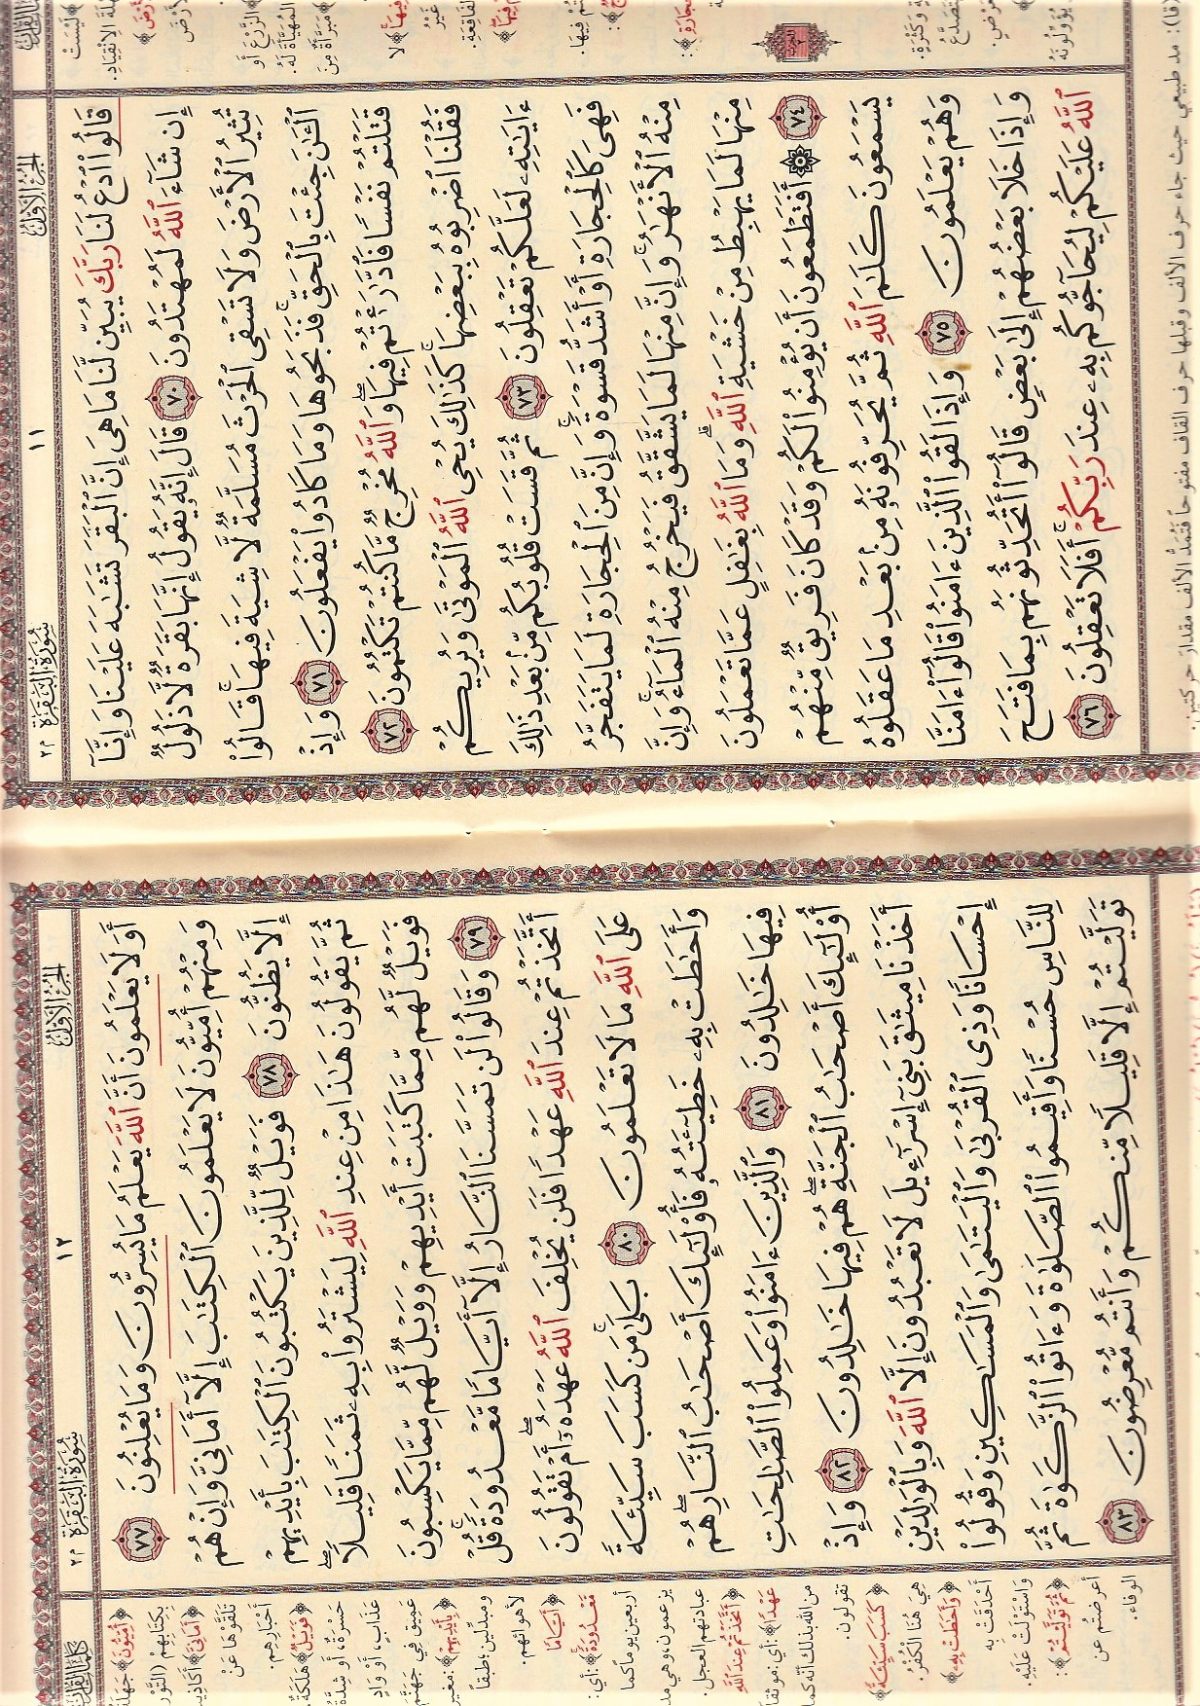 الجزء الأول
١١
سورة البقرة ٢
قَالُوا۟ ٱدْعُ لَنَا رَبَّكَ يُبَيِّن لَّنَا مَا هِىَ إِنَّ ٱلْبَقَرَ تَشَـٰبَهَ عَلَيْنَا وَإِنَّآ
إِن شَآءَ ٱللَّهُ لَمُهْتَدُونَ ٧٠ قَالَ إِنَّهُۥ يَقُولُ إِنَّهَا بَقَرَةٌ لَّا ذَلُولٌ
تُثِيرُ ٱلْأَرْضَ وَلَا تَسْقِى ٱلْحَرْثَ مُسَلَّمَةٌ لَّا شِيَةَ فِيهَا ۚ قَالُوا۟
ٱلْـَٔـٰنَ جِئْتَ بِٱلْحَقِّ ۚ فَذَبَحُوهَا وَمَا كَادُوا۟ يَفْعَلُونَ ٧١ وَإِذْ
قَتَلْتُمْ نَفْسًا فَٱدَّٰرَْٰٔتُمْ فِيهَا ۖ وَٱللَّهُ مُخْرِجٌ مَّا كُنتُمْ تَكْتُمُونَ ٧٢
فَقُلْنَا ٱضْرِبُوهُ بِبَعْضِهَا ۚ كَذَٰلِكَ يُحْىِ ٱللَّهُ ٱلْمَوْتَىٰ وَيُرِيكُمْ
ءَايَـٰتِهِۦ لَعَلَّكُمْ تَعْقِلُونَ ٧٣ ثُمَّ قَسَتْ قُلُوبُكُم مِّنۢ بَعْدِ ذَٰلِكَ
فَهِىَ كَٱلْحِجَارَةِ أَوْ أَشَدُّ قَسْوَةً ۚ وَإِنَّ مِنَ ٱلْحِجَارَةِ لَمَا يَتَفَجَّرُ
مِنْهُ ٱلْأَنْهَـٰرُ ۚ وَإِنَّ مِنْهَا لَمَا يَشَّقَّقُ فَيَخْرُجُ مِنْهُ ٱلْمَآءُ ۚ وَإِنَّ
مِنْهَا لَمَا يَهْبِطُ مِنْ خَشْيَةِ ٱللَّهِ ۗ وَمَا ٱللَّهُ بِغَـٰفِلٍ عَمَّا تَعْمَلُونَ
٧٤ ۞ أَفَتَطْمَعُونَ أَن يُؤْمِنُوا۟ لَكُمْ وَقَدْ كَانَ فَرِيقٌ مِّنْهُمْ
يَسْمَعُونَ كَلَـٰمَ ٱللَّهِ ثُمَّ يُحَرِّفُونَهُۥ مِنۢ بَعْدِ مَا عَقَلُوهُ
وَهُمْ يَعْلَمُونَ ٧٥ وَإِذَا لَقُوا۟ ٱلَّذِينَ ءَامَنُوا۟ قَالُوٓا۟ ءَامَنَّا
وَإِذَا خَلَا بَعْضُهُمْ إِلَىٰ بَعْضٍ قَالُوٓا۟ أَتُحَدِّثُونَهُم بِمَا فَتَحَ
ٱللَّهُ عَلَيْكُمْ لِيُحَآجُّوكُم بِهِۦ عِندَ رَبِّكُمْ ۚ أَفَلَا تَعْقِلُونَ ٧٦
مد طبيعي حيث جاء حرف الألف وقبلها حرف القاف مفتوحاً فتُمَدُّ الألف مقدار حركتين.
الجزء الأول
١٢
سورة البقرة ٢
أَوَلَا يَعْلَمُونَ أَنَّ ٱللَّهَ يَعْلَمُ مَا يُسِرُّونَ وَمَا يُعْلِنُونَ ٧٧
وَمِنْهُمْ أُمِّيُّونَ لَا يَعْلَمُونَ ٱلْكِتَـٰبَ إِلَّآ أَمَانِىَّ وَإِنْ هُمْ
إِلَّا يَظُنُّونَ ٧٨ فَوَيْلٌ لِّلَّذِينَ يَكْتُبُونَ ٱلْكِتَـٰبَ بِأَيْدِيهِمْ
ثُمَّ يَقُولُونَ هَـٰذَا مِنْ عِندِ ٱللَّهِ لِيَشْتَرُوا۟ بِهِۦ ثَمَنًا قَلِيلًا ۖ
فَوَيْلٌ لَّهُم مِّمَّا كَتَبَتْ أَيْدِيهِمْ وَوَيْلٌ لَّهُم مِّمَّا يَكْسِبُونَ
٧٩ وَقَالُوا۟ لَن تَمَسَّنَا ٱلنَّارُ إِلَّآ أَيَّامًا مَّعْدُودَةً ۚ قُلْ
أَتَّخَذْتُمْ عِندَ ٱللَّهِ عَهْدًا فَلَن يُخْلِفَ ٱللَّهُ عَهْدَهُۥٓ ۖ أَمْ تَقُولُونَ
عَلَى ٱللَّهِ مَا لَا تَعْلَمُونَ ٨٠ بَلَىٰ ۚ مَن كَسَبَ سَيِّئَةً
وَأَحَـٰطَتْ بِهِۦ خَطِيٓـَٔتُهُۥ فَأُو۟لَـٰٓئِكَ أَصْحَـٰبُ ٱلنَّارِ ۖ هُمْ
فِيهَا خَـٰلِدُونَ ٨١ وَٱلَّذِينَ ءَامَنُوا۟ وَعَمِلُوا۟ ٱلصَّـٰلِحَـٰتِ
أُو۟لَـٰٓئِكَ أَصْحَـٰبُ ٱلْجَنَّةِ ۖ هُمْ فِيهَا خَـٰلِدُونَ ٨٢ وَإِذْ
أَخَذْنَا مِيثَـٰقَ بَنِىٓ إِسْرَٰٓءِيلَ لَا تَعْبُدُونَ إِلَّا ٱللَّهَ وَبِٱلْوَٰلِدَيْنِ
إِحْسَانًا وَذِى ٱلْقُرْبَىٰ وَٱلْيَتَـٰمَىٰ وَٱلْمَسَـٰكِينِ وَقُولُوا۟
لِلنَّاسِ حُسْنًا وَأَقِيمُوا۟ ٱلصَّلَوٰةَ وَءَاتُوا۟ ٱلزَّكَوٰةَ ثُمَّ
تَوَلَّيْتُمْ إِلَّا قَلِيلًا مِّنكُمْ وَأَنتُم مُّعْرِضُونَ ٨٣
﴿فَوَيْلٌ﴾ هَلَكَةٌ
لأهوائهم.
﴿أَيَّامًا
مَّعْدُودَةً﴾: أي:
أربعين يوماً كما
عبادتهم العجل.
﴿أَتَّخَذْتُمْ عِندَ اللَّهِ
تقولون.
﴿كَسَبَ سَيِّئَةً﴾
هِيَ هُنَا الكُفْرُ.
﴿وَأَحَاطَتْ بِهِ﴾
أَحْدَقَتْ بِهِ
وَاسْتَوْلَتْ عَلَيْهِ.
﴿ثُمَّ تَوَلَّيْتُمْ﴾:
أعرضتُم عن
الوفاء.